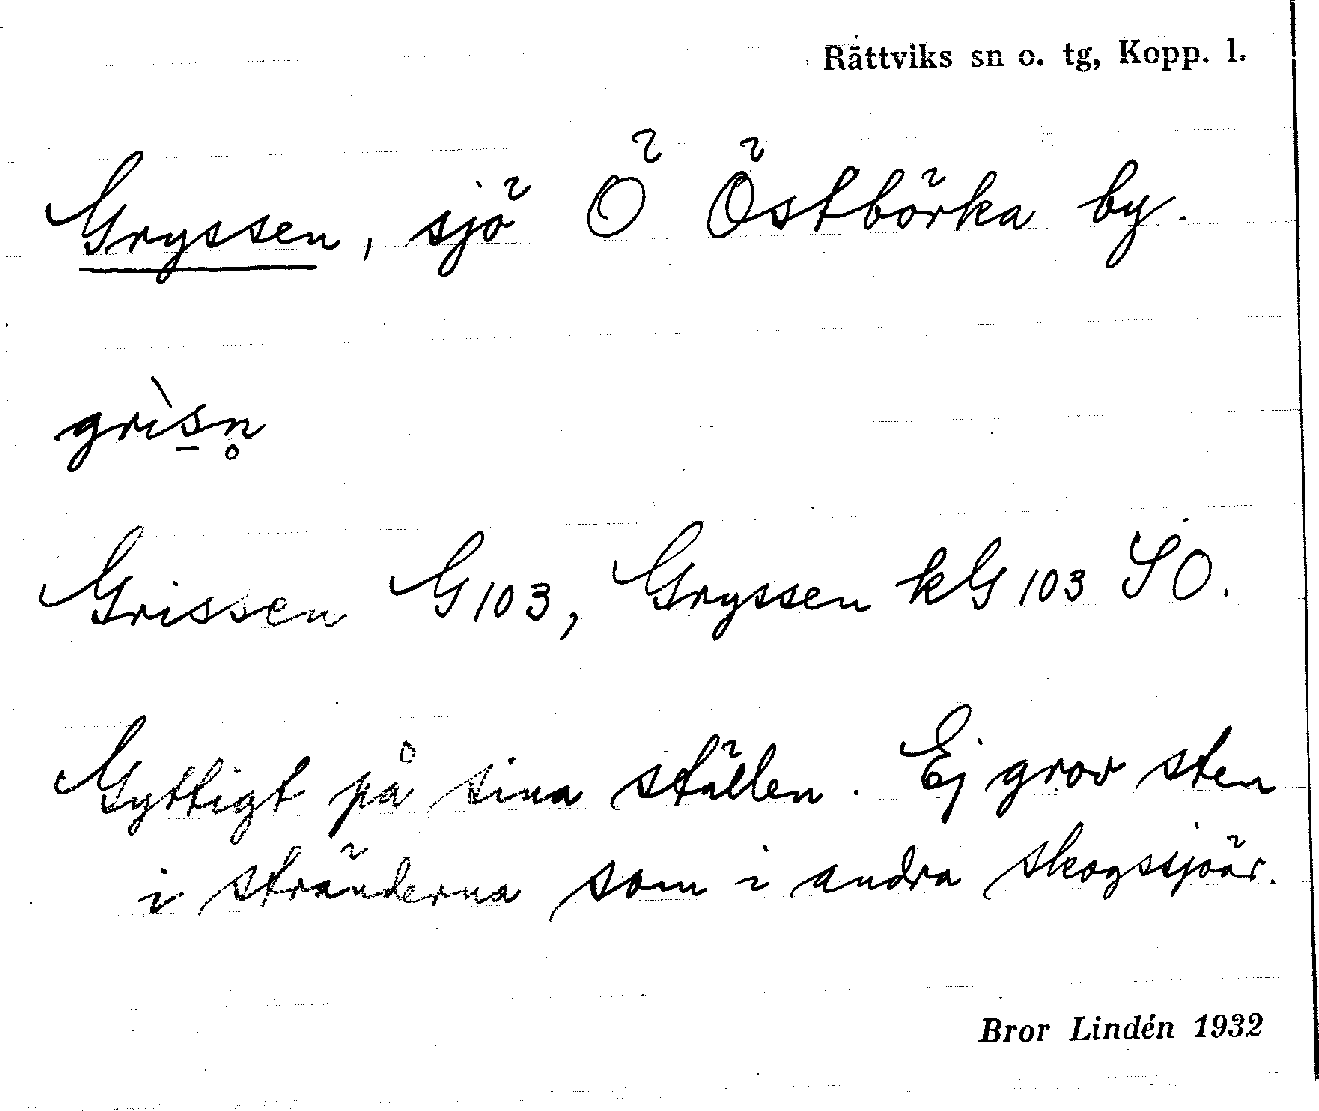 Rättviks sn o. tg, Kopp. l.
Gryssen, sjö Ö Östbörka by.
grìs̱n̥
Grissen G103, Gryssen kG103 SO.
Gyttigt på sina ställen. Ej grov sten
i stränderna som i andra skogssjöar.
Bror Lindén 1932